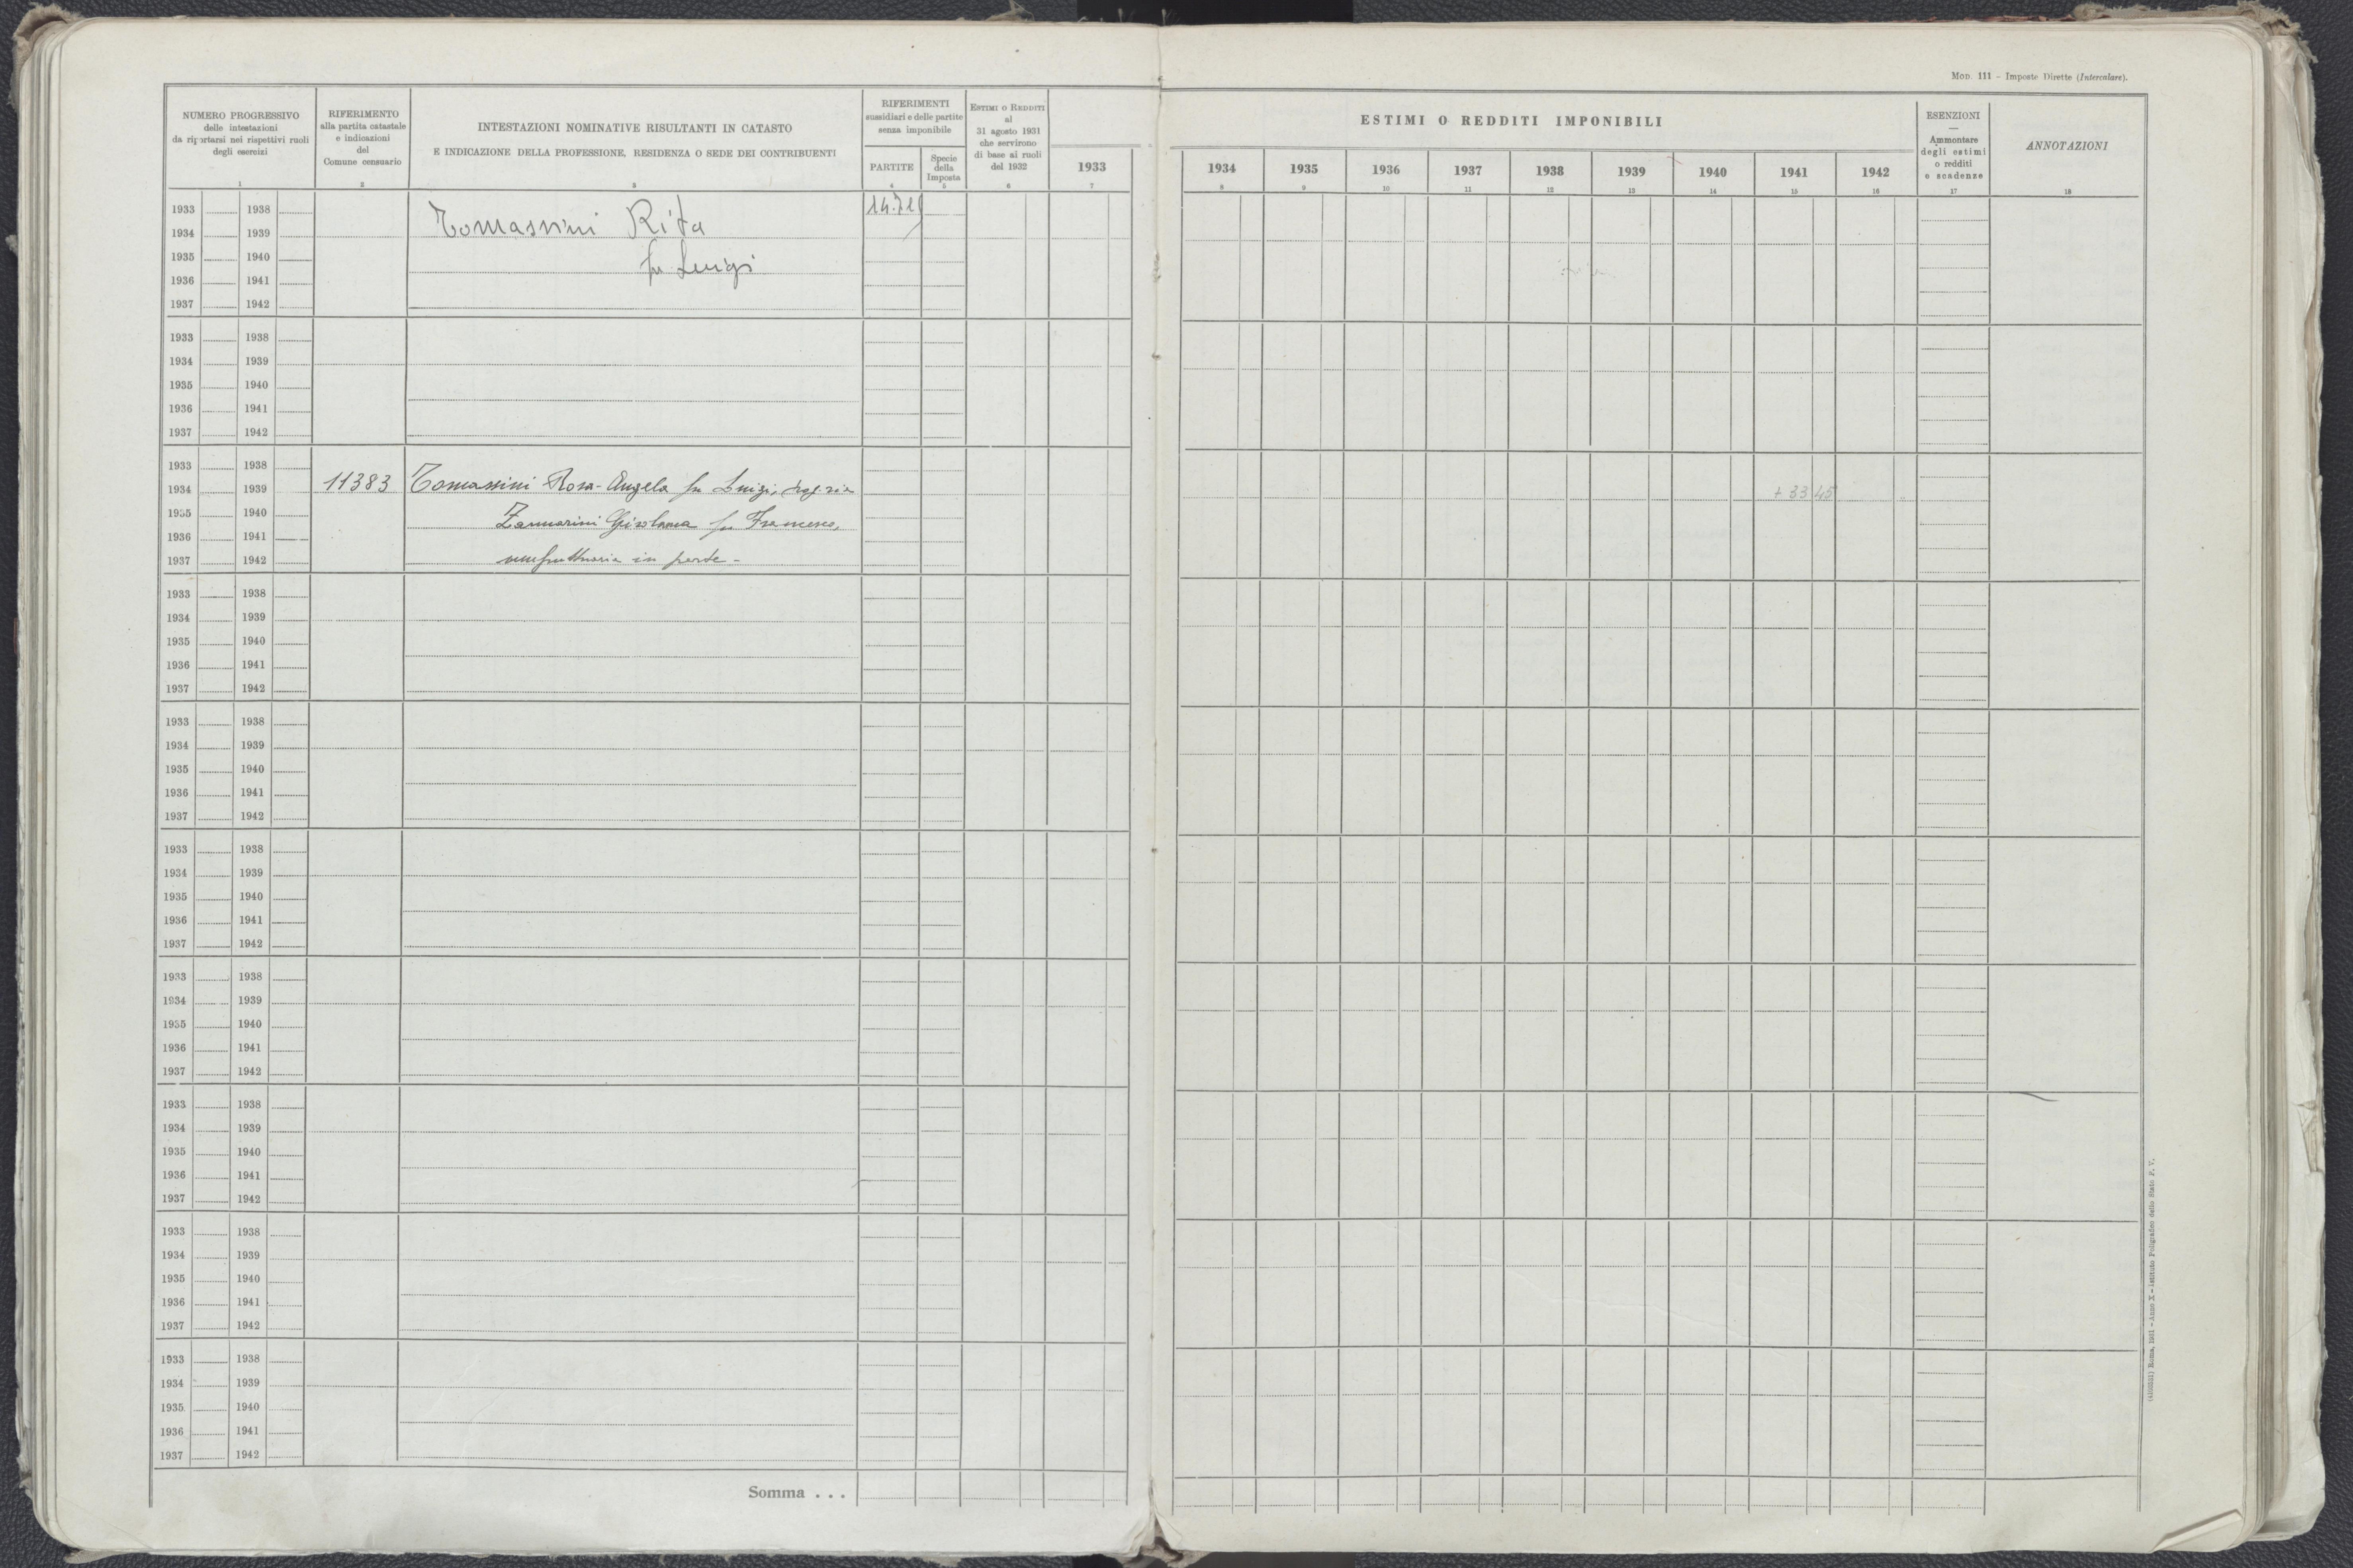 MOD. 111 - Imposte Dirette (Intercalare).
NUMERO PROGRESSIVO
delle intestazioni
da riportarsi nei rispettivi ruoli
degli esercizi
1
RIFERIMENTO
alla partita catastale
e indicazioni
del
Comune censuario
2
INTESTAZIONI NOMINATIVE RISULTANTI IN CATASTO
E INDICAZIONE DELLA PROFESSIONE, RESIDENZA O SEDE DEI CONTRIBUENTI
3
RIFERIMENTI
sussidiari e delle partite
senza imponibile
PARTITE
4
Specie
della
Imposta
5
ESTIMI O REDDITI
al
31 agosto 1931
che servirono
di base ai ruoli
del 1932
6
1933
7
ESTIMI O REDDITI IMPONIBILI
1934 1935 1936 1937 1938 1939 1940 1941 1942
8 9 10 11 12 13 14 15 16
ESENZIONI
—
Ammontare
degli estimi
o redditi
e scadenze
17
ANNOTAZIONI
18
1933 1938
1934 1939 Tomassini Rita
1935 1940 fu Luigi
1936 1941
1937 1942
1933 1938
1934 1939
1935 1940
1936 1941
1937 1942
1933 1938
1934 1939 11383 Tomassini Rosa-Angela fu Luigi, + 33 45
1935 1940 Zannarini Girolama fu Francesco,
1936 1941
1937 1942 usufruttuaria in parte -
1933 1938
1934 1939
1935 1940
1936 1941
1937 1942
1933 1938
1934 1939
1935 1940
1936 1941
1937 1942
1933 1938
1934 1939
1935 1940
1936 1941
1937 1942
1933 1938
1934 1939
1935 1940
1936 1941
1937 1942
1933 1938
1934 1939
1935 1940
1936 1941
1937 1942
1933 1938
1934 1939
1935 1940
1936 1941
1937 1942
1933 1938
1934 1939
1935 1940
1936 1941
1937 1942
Somma . . .
Roma, 1931 - Anno X - Istituto Poligrafico dello Stato P. V.